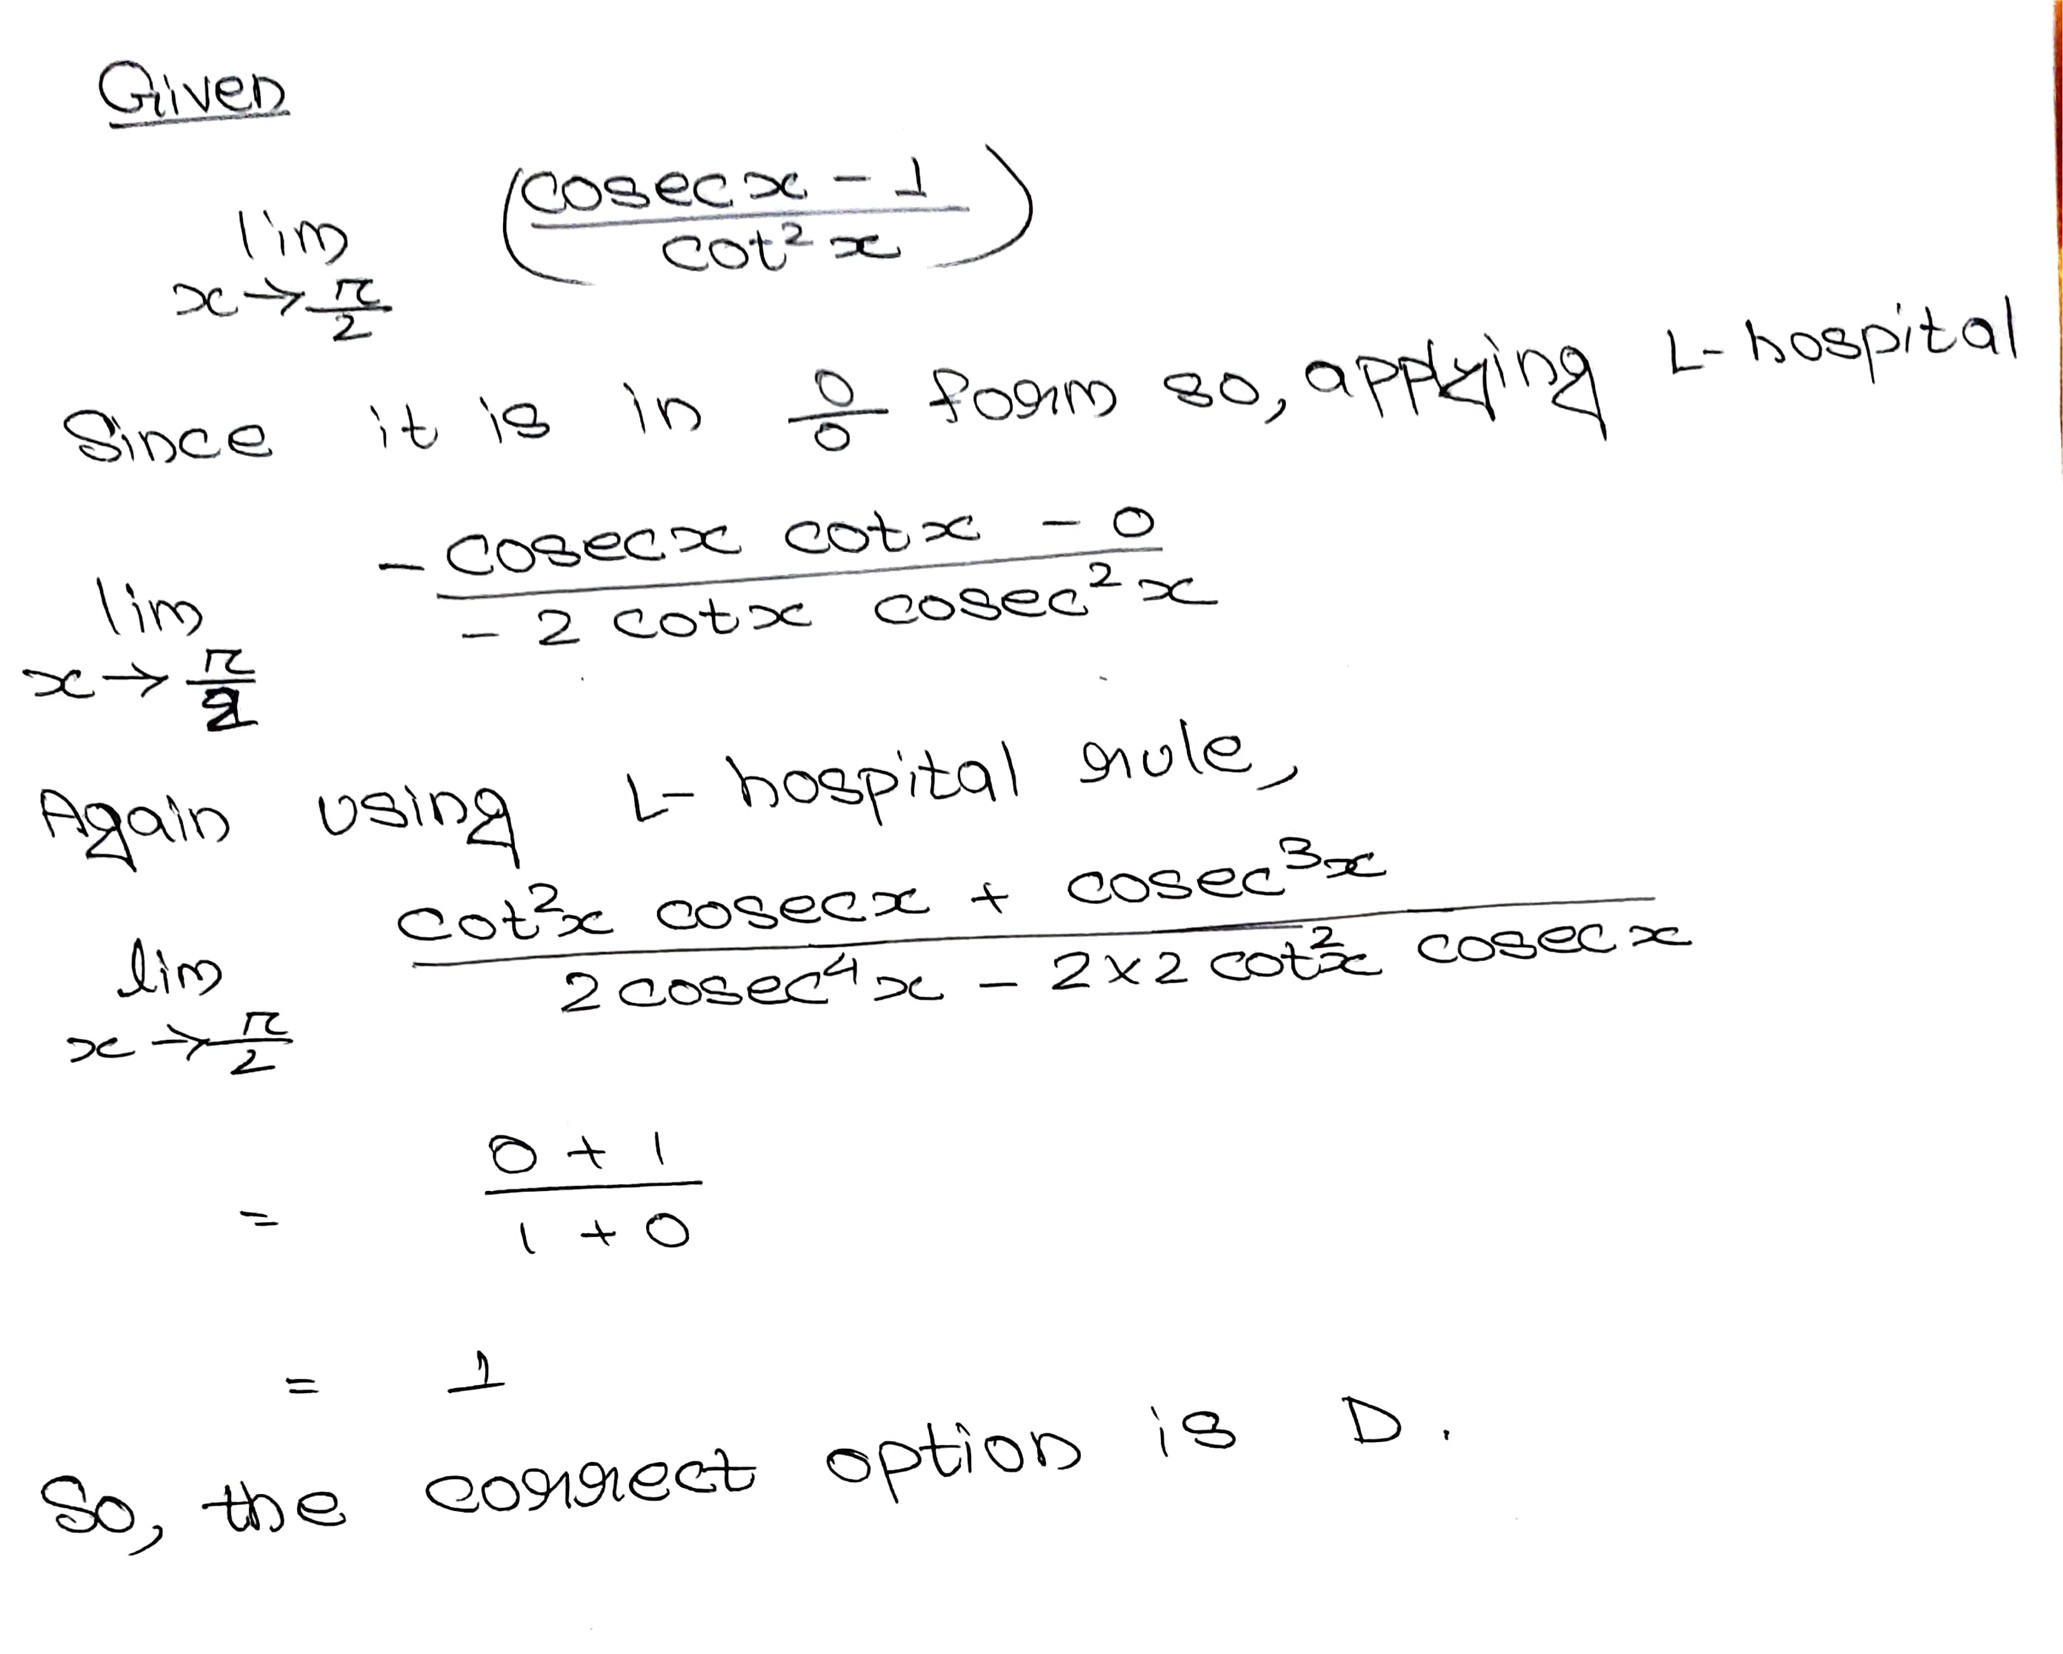 Given
lim x→π/2 (cosecx - 1 / cot²x)
Since it is in 0/0 form so, applying L-hospital
lim x→π/2 -cosecx cotx - 0 / -2cotx cosec²x
Again using L-hospital rule,
lim x→π/2 cot²x cosecx + cosec³x / 2cosec⁴x - 2×2 cot²x cosecx
= 0 + 1 / 1 + 0
= 1
So, the correct option is D.